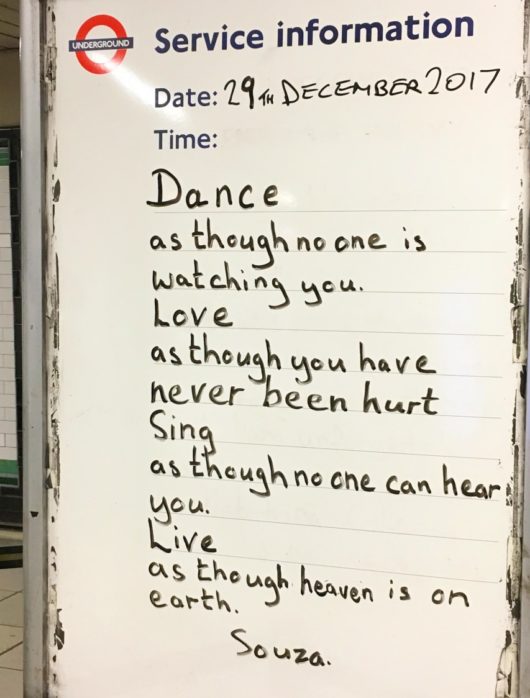 UNDERGROUND
Service information
Date: 29TH DECEMBER 2017
Time:
Dance
as though no one is
watching you.
Love
as though you have
never been hurt
Sing
as though no one can hear
you.
Live
as though heaven is on
earth.
Souza.